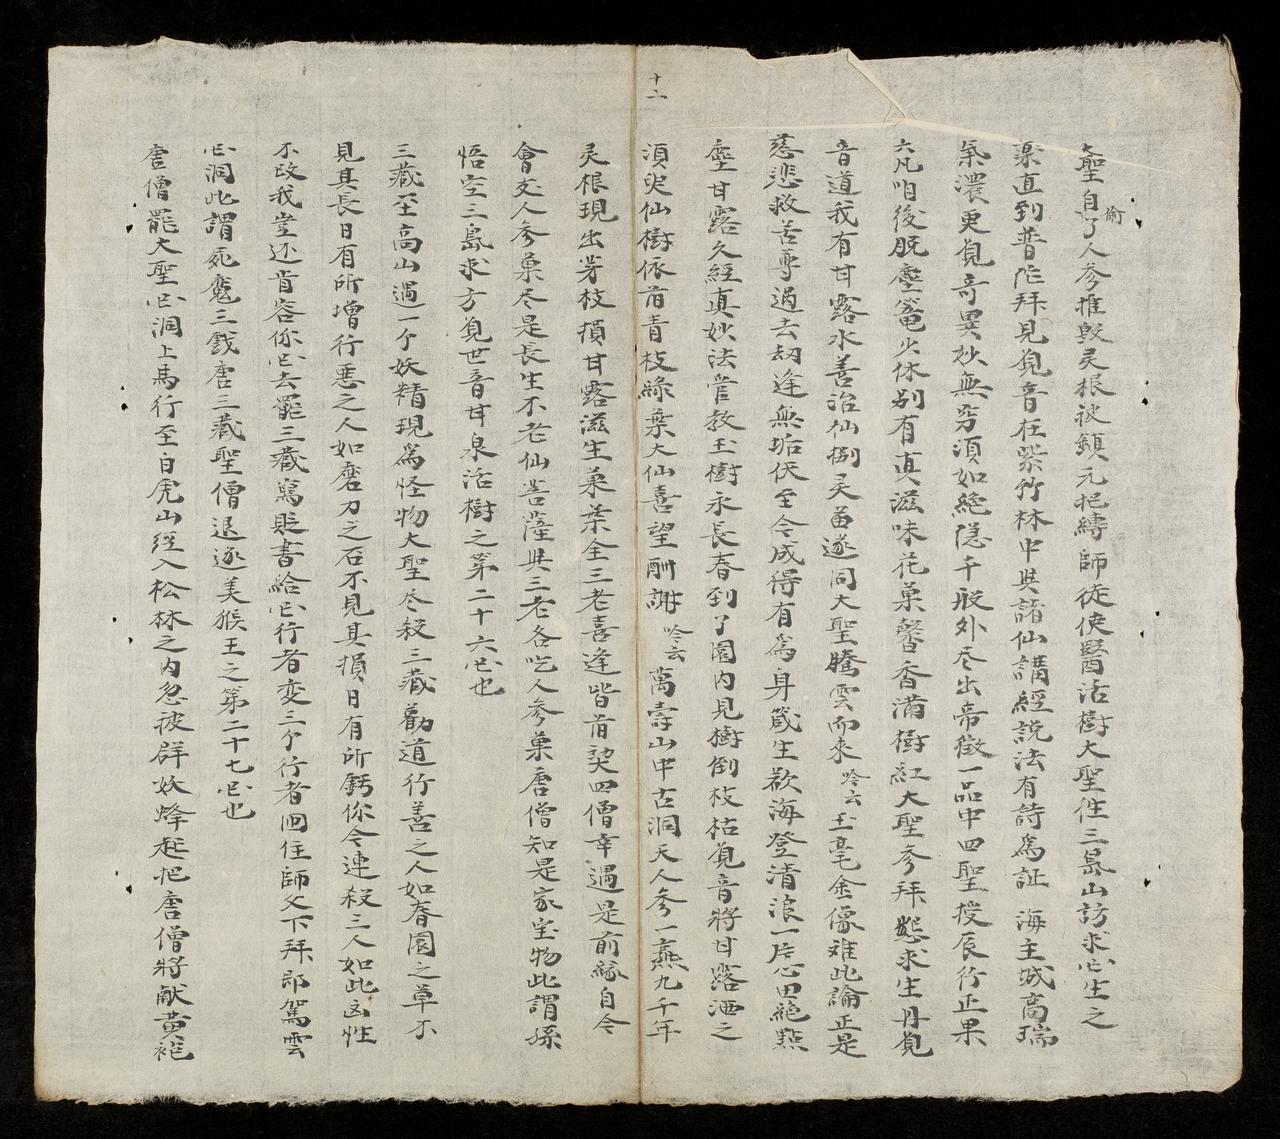 大聖自偷了人參推毀灵根被鎮元把縛師徒使醫活樹大聖徃三島山訪求回生之
泉直到普陀拜見覌音在紫竹林中與諸仙講經説法有詩爲証 海主城高瑞
氣濃更覌奇異妙無穷須如絶隐千般外尽出帝微一品中四聖授辰行正果
六凡咱後脱塵篭少休别有真滋味花菓馨香滿樹紅大聖參拜懇求生丹覌
音道我有甘露水善治仙樹灵苗遂同大聖騰雲而來 吟云 玉毫金像难此論正是
慈悲救苦尊過去劫逢無垢伕至今成得有爲身箴生欲海登清浪一片心田絶點
塵甘露久經真妙法管教玉樹永長春到了園内見樹倒枝枯覌音將甘露洒之
須臾仙樹依前青枝綠葉大仙喜望酬謝 吟云 萬壽山中古洞天人參一熟九千年
灵根現出芽枝損甘露滋生菓葉全三老喜逢皆前契四僧幸遇是前緣自今
會交人參菓尽是長生不老仙菩薩與三老各吃人參菓唐僧知是家宝物此謂孫
悟空三島求方覌世音甘泉活樹之第二十六回也
三藏至高山遇一个妖精現爲怪物大聖尽殺三藏勸道行善之人如春園之草不
見其長日有所增行悪之人如磨刀之石不見其損日有所虧你今連殺三人如此凶性
不改我豈还肯容你回去罷三藏寫貶書給回行者变三个行者囬住師父下拜即駕雲
回洞此謂死魔三戲唐三藏聖僧退逐美猴王之第二十七回也
唐僧罷大聖回洞上馬行至白虎山徑入松林之内忽被群妖蜂起把唐僧將献黄袍
十二